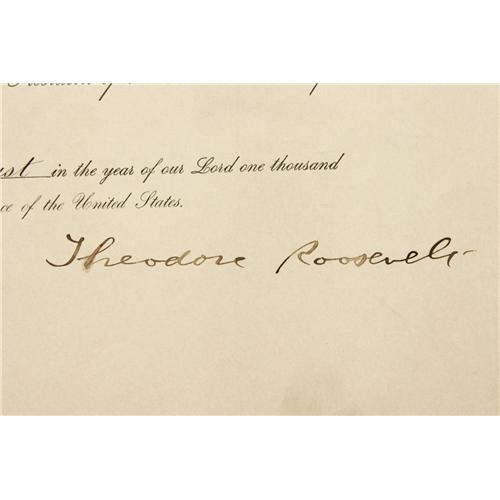 ust in the year of our Lord one thousand
ce of the United States.
Theodore Roosevelt